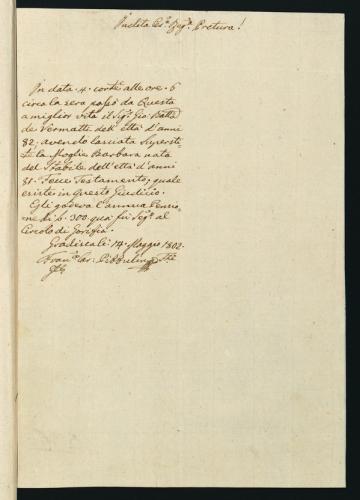 Inclita Ces:ª Reg:ª Pretura!
In data .4. corr:te alle ore .6
circa la sera passò da Questa
a miglior vita il Sig:r Gio: Batta
de Vermatti dell' età d'anni
82; avendo lasciata Superstite
la Moglie Barbara nata
del Stabile dell' età d'anni
81. Fece Testamento, quale
esiste in Questo Giudicio.
Egli godeva l'annua Pensione
di f. 300. quà fù Seg:to al
Circolo di Gorizia.
Gradisca li 14. Maggio 1802.
Fran:co Car: